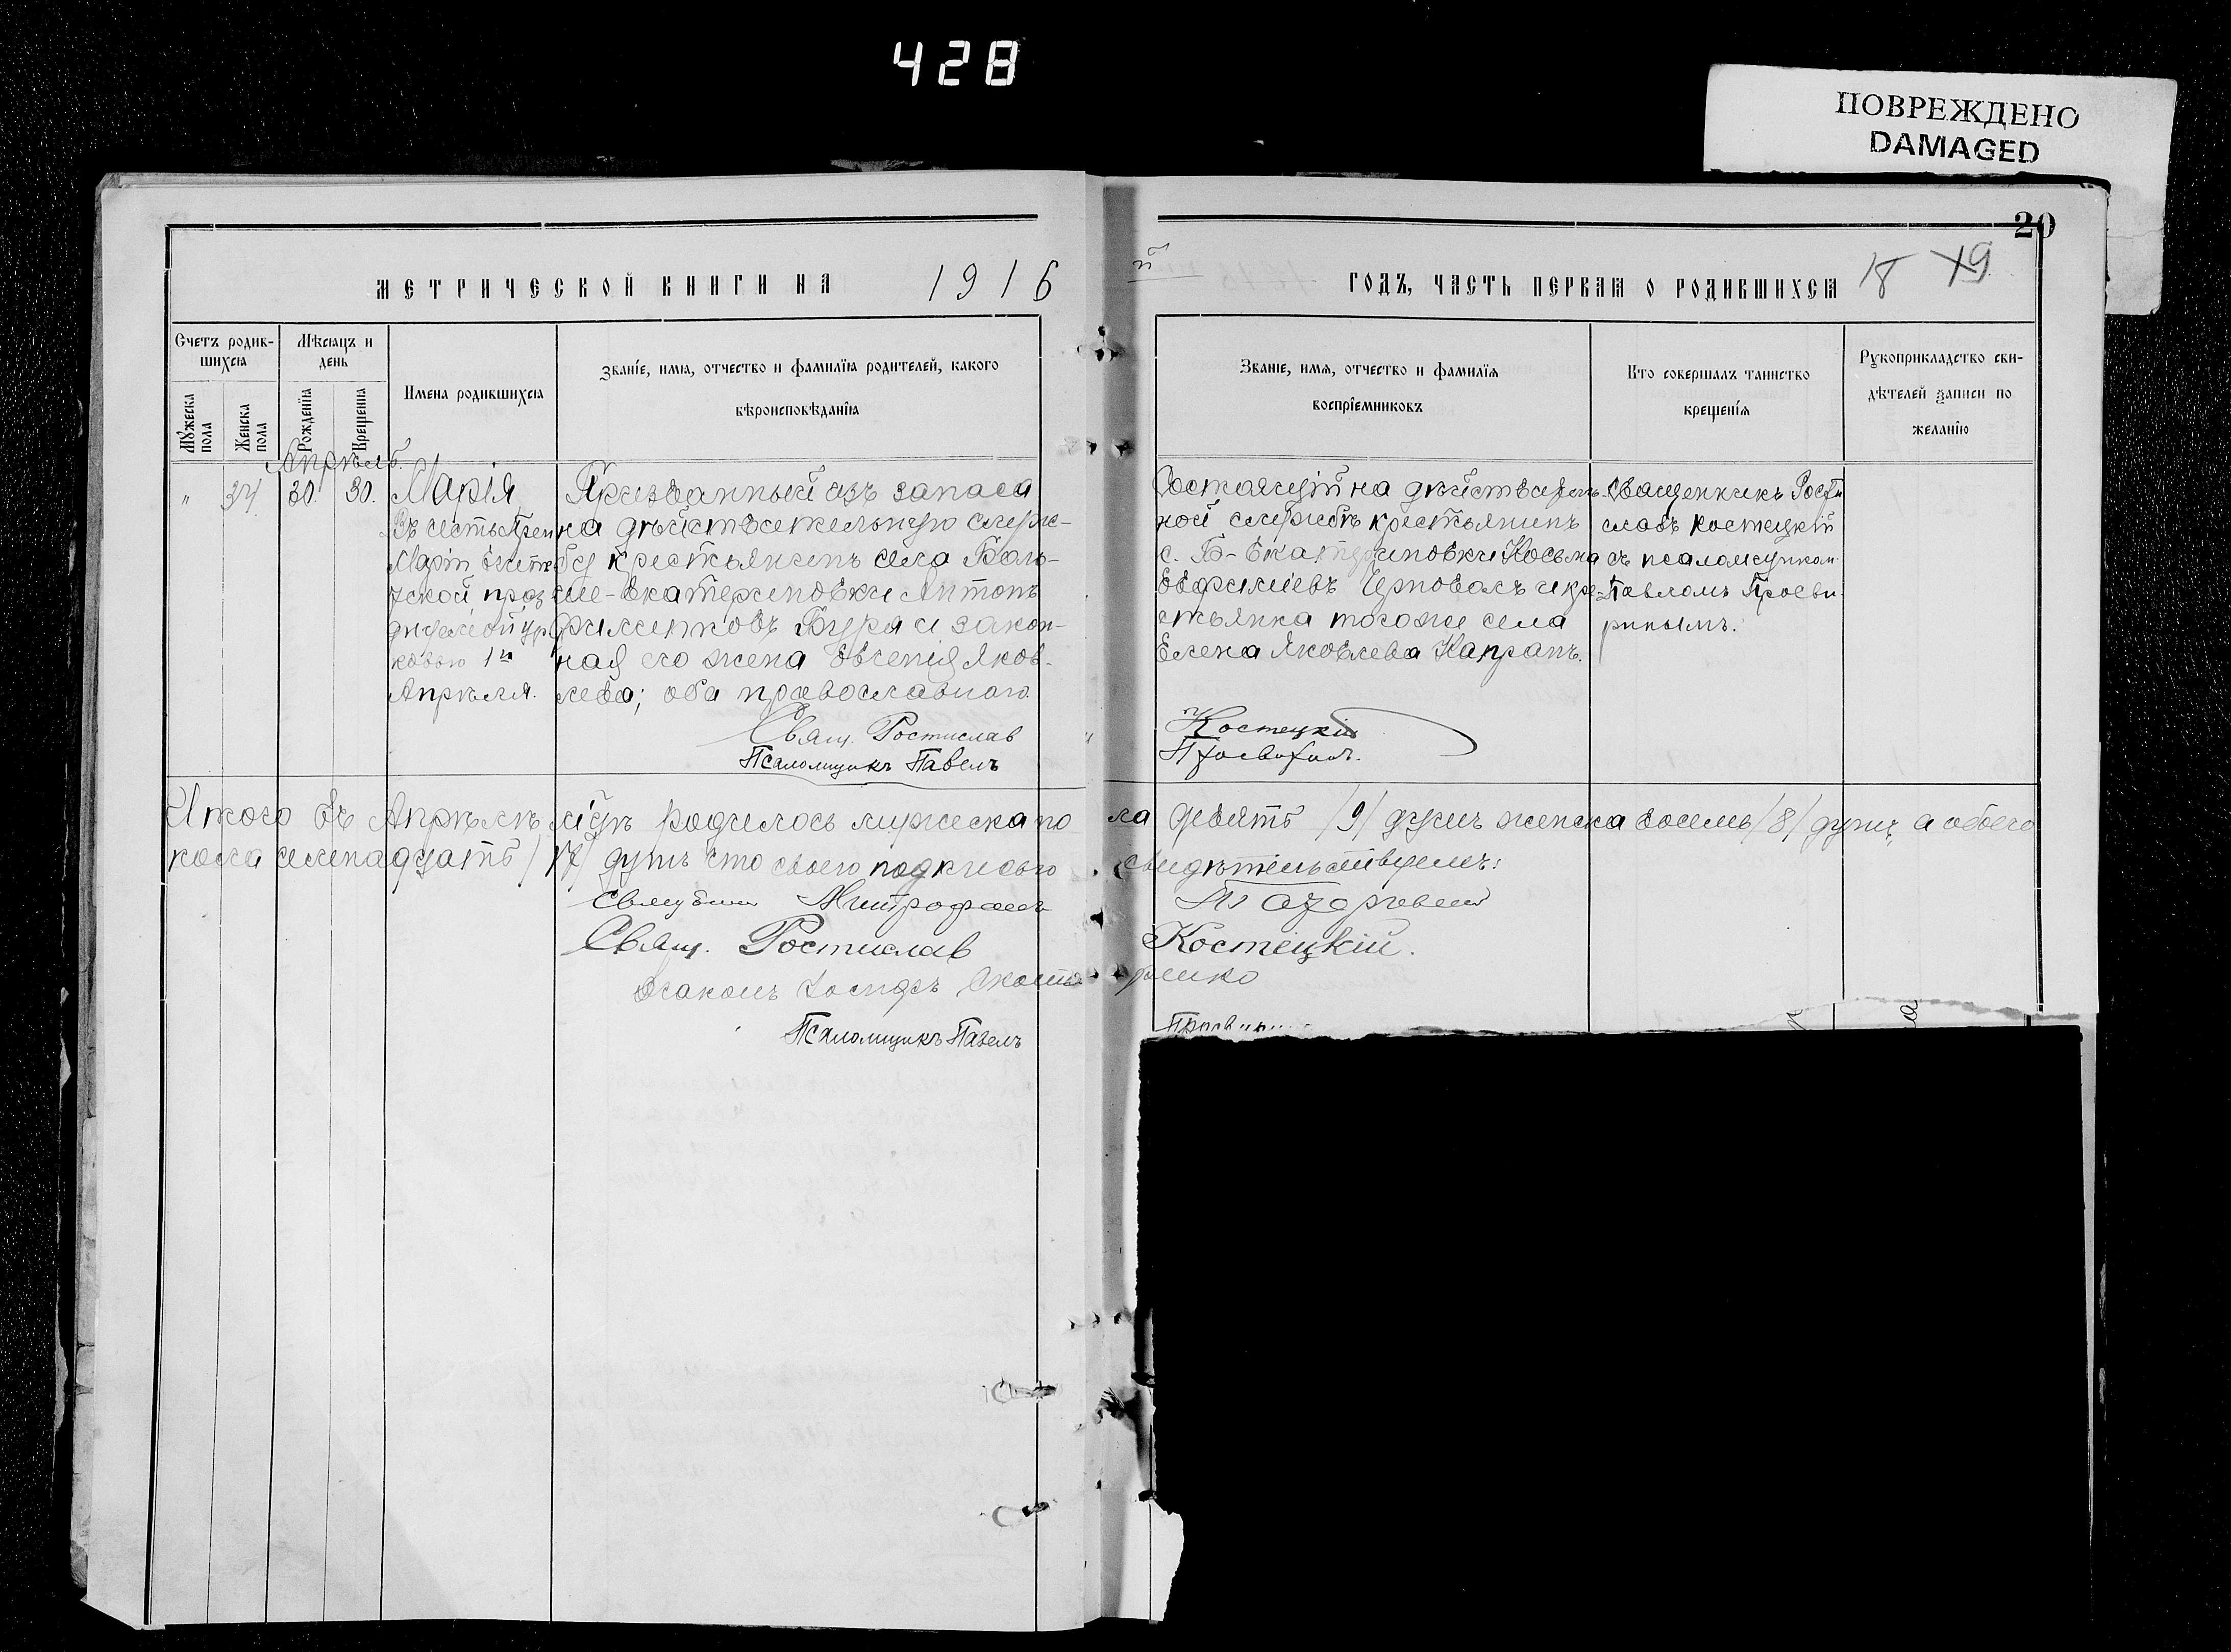 428
ПОВРЕЖДЕНО
DAMAGED
20
МЕТРИЧЕСКОЙ КНИГИ НА 1916
й
ГОДЪ, ЧАСТЬ ПЕРВАЯ О РОДИВШИХСЯ
18 19
Счетъ родив-
шихся
Мѣсяцъ и
день
Мужеска
пола
Женска
пола
Рожденїя
Крещенїя
Имена родившихся
Званїе, имя, отчество и фамилїя родителей, какого
вѣроисповѣданїя
Званїе, имя, отчество и фамилїя
воспрїемниковъ
Кто совершалъ таинство
крещенїя
Рукоприкладство сви-
дѣтелей записи по
желанїю
Апрѣль.
" 34. 30. 30.
Марія
Въ честь Преп
Маріи Египт
ской праз
днуемой цер
ковью 1го
Апрѣля.
Призванный изъ запаса
на дѣйствительную служ-
бу крестьянинъ села Боль-
ше-Екатериновки Антонъ
Филипповъ Буря и закон-
ная его жена Евгенія Яков-
лева; оба православнаго.
Свящ. Ростислав
Псаломщикъ Павелъ
Состоящій на дѣйствитель-
ной службѣ крестьянинъ
с. Б-Екатериновки Косьма
Евфиміевъ Чрповалъ и кре-
стьянка тогоже села
Елена Яковлева Капранъ.
Костецкій
Просвиринъ.
Священникъ Рости
славъ Костецкій
съ псаломщиком
Павломъ Просви
ринымъ.
Итого въ Апрѣлѣ мѣцѣ родилось мужеска по ла девять /9/ душъ женска восемь /8/ душъ, а обоего
пола семнадцать /17/ душъ что своею подписью свидѣтельствуемъ:
Священник Митрофанъ
Свящ. Ростислав Костецкій.
Діаконъ Іосифъ
Псаломщикъ Павелъ